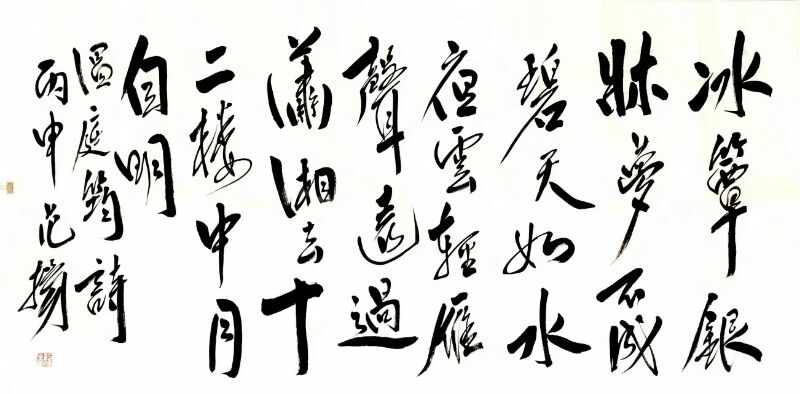 冰簟銀
牀夢不成
碧天如水
夜雲輕雁
聲遠過
瀟湘去十
二樓中月
自明
溫庭筠詩
丙申范